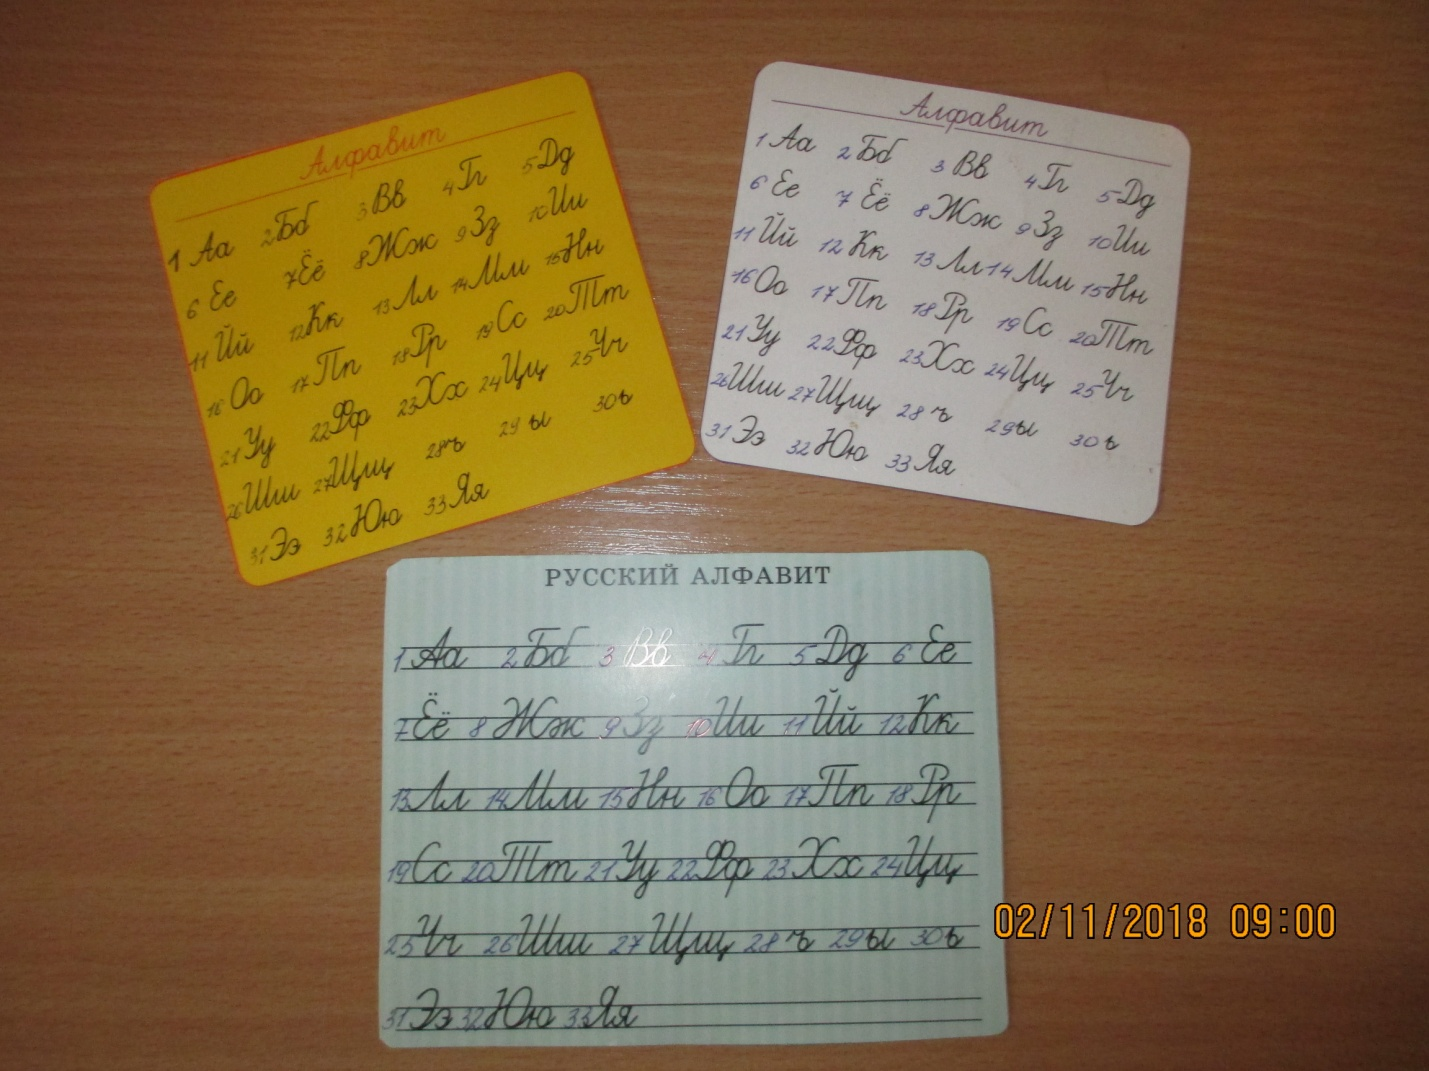 Алфавит
1 Аа 2 Бб 3 Вв 4 Гг 5 Дд
6 Ее 7 Ёё 8 Жж 9 Зз 10 Ии
11 Йй 12 Кк 13 Лл 14 Мм 15 Нн
16 Оо 17 Пп 18 Рр 19 Сс 20 Тт
21 Уу 22 Фф 23 Хх 24 Цц 25 Чч
26 Шш 27 Щщ 28 ъ 29 ы 30 ь
31 Ээ 32 Юю 33 Яя
Алфавит
1 Аа 2 Бб 3 Вв 4 Гг 5 Дд
6 Ее 7 Ёё 8 Жж 9 Зз 10 Ии
11 Йй 12 Кк 13 Лл 14 Мм 15 Нн
16 Оо 17 Пп 18 Рр 19 Сс 20 Тт
21 Уу 22 Фф 23 Хх 24 Цц 25 Чч
26 Шш 27 Щщ 28 ъ 29 ы 30 ь
31 Ээ 32 Юю 33 Яя
РУССКИЙ АЛФАВИТ
1 Аа 2 Бб 3 Вв 4 Гг 5 Дд 6 Ее
7 Ёё 8 Жж 9 Зз 10 Ии 11 Йй 12 Кк
13 Лл 14 Мм 15 Нн 16 Оо 17 Пп 18 Рр
19 Сс 20 Тт 21 Уу 22 Фф 23 Хх 24 Цц
25 Чч 26 Шш 27 Щщ 28 ъ 29 ы 30 ь
31 Ээ 32 Юю 33 Яя
02/11/2018 09:00